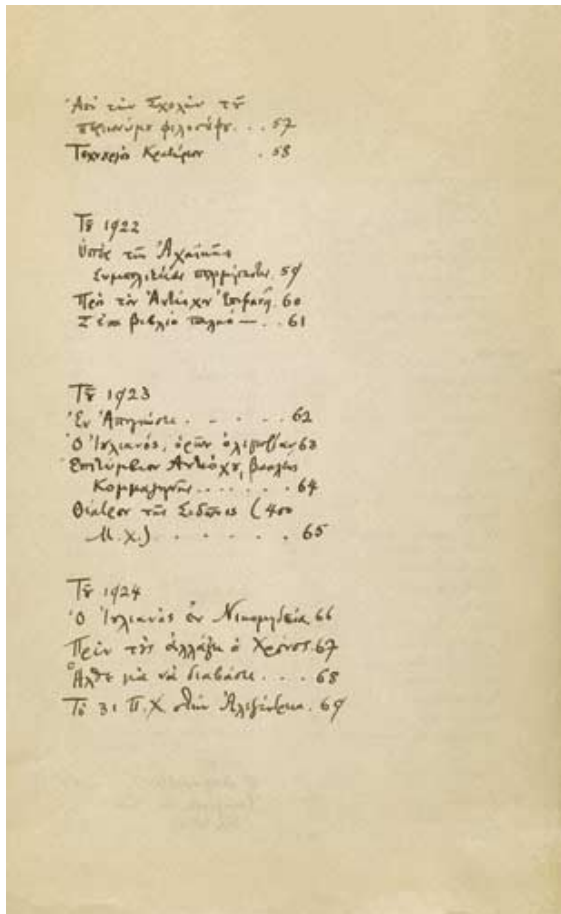 Ἀπὸ τὴν Σχολὴν τοῦ
περιωνύμου φιλοσόφου. . . 57
Τεχνουργὸς Κρατήρων . 58
Τοῦ 1922
Ὑπὲρ τῆς Ἀχαϊκῆς
Συμπολιτείας πολεμήσαντες. 59
Πρὸς τὸν Ἀντίοχον Ἐπιφανῆ. 60
Σ' ἕνα βιβλίο παληό — . . 61
Τοῦ 1923
Ἐν Ἀπογνώσει . - . - . . 62
Ὁ Ἰουλιανός, ὁρῶν ὀλιγωρίαν 63
Ἐπιτύμβιον Ἀντιόχου, βασιλέως
Κομμαγηνῆς . . . . . . . 64
Θέατρον τῆς Σιδῶνος (400
Μ.Χ.) . . . . . . . 65
Τοῦ 1924
Ὁ Ἰουλιανὸς ἐν Νικομηδείᾳ 66
Πρὶν τοὺς ἀλλάξει ὁ Χρόνος. 67
Ἦλθε γιὰ νὰ διαβάσει . . . 68
Τὸ 31 Π.Χ. στὴν Ἀλεξάνδρεια. 69